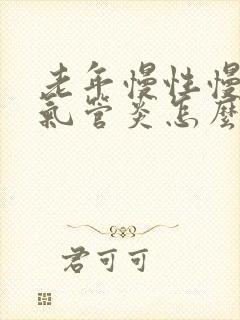 老年慢性慢
氣管炎怎麼
君可可